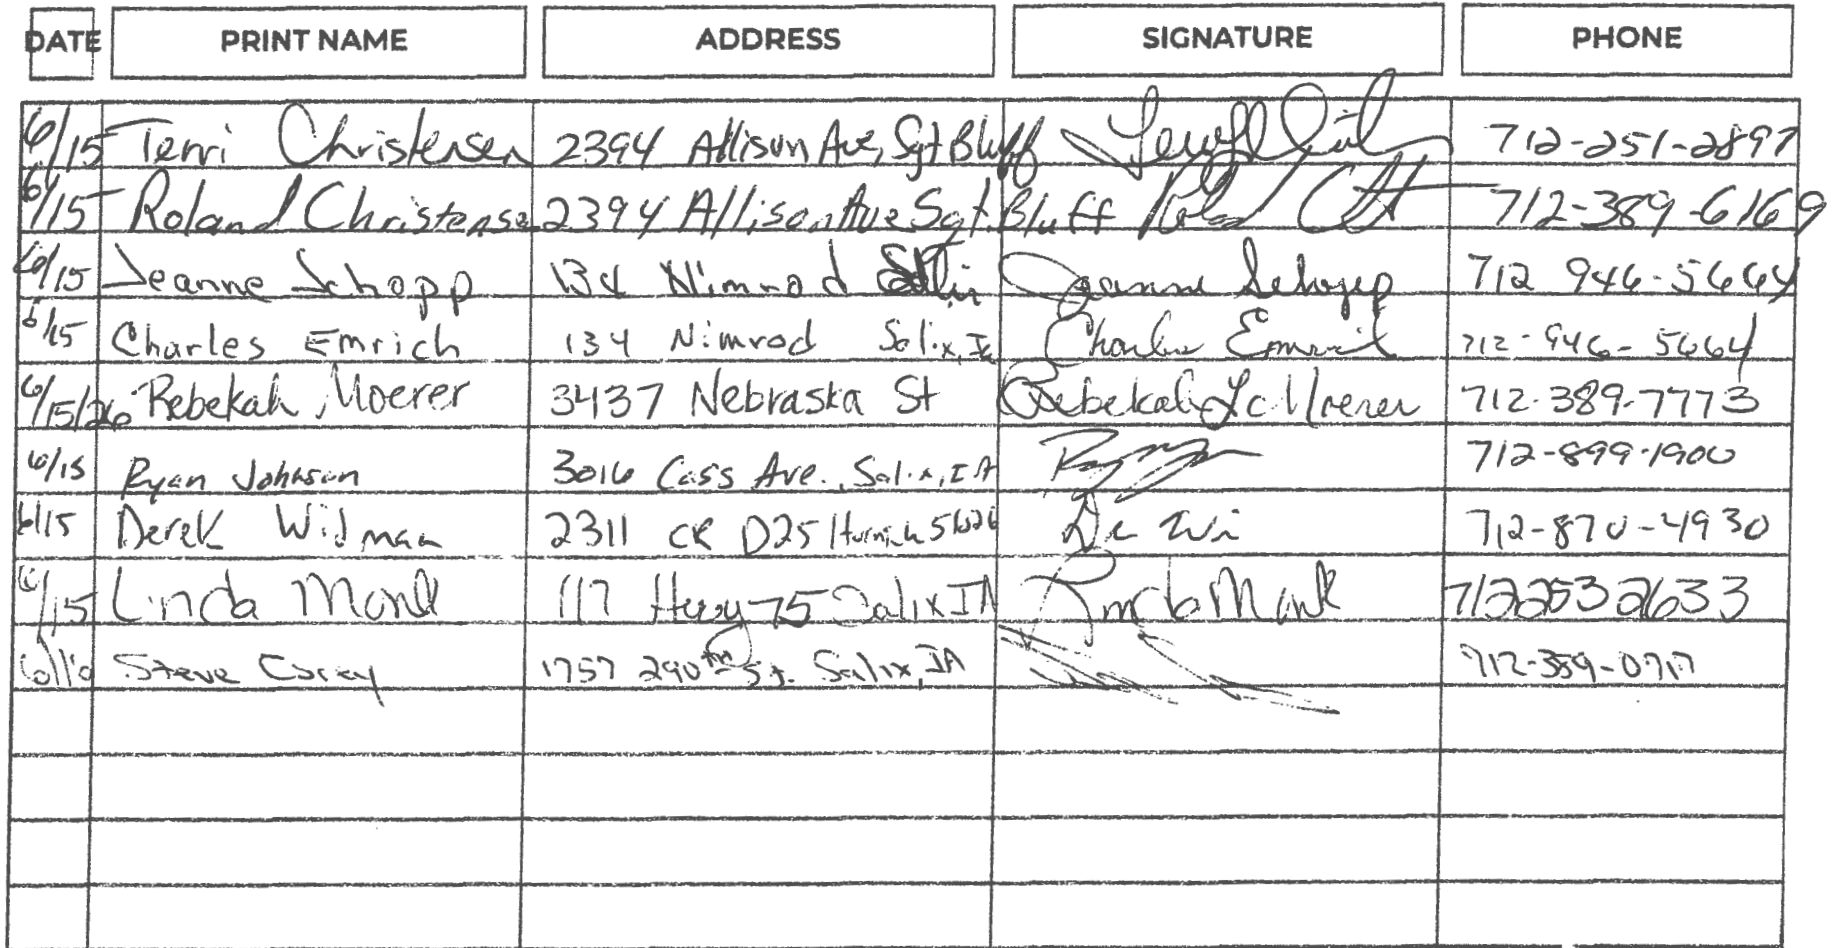 DATE PRINT NAME ADDRESS SIGNATURE PHONE
6/15 Terri Christensen 2394 Allison Ave, Sgt Bluff 712-251-2897
6/15 Roland Christense 2394 Allison Ave Sgt. Bluff 712-389-6169
6/15 Jeanne Schopp 134 Nimrod Jeanne Schopp 712 946-5664
6/15 Charles Emrich 134 Nimrod Salix, Ia Charles Emrich 712-946-5664
6/15/26 Rebekah Moerer 3437 Nebraska St Rebekah Moerer 712-389-7773
6/15 Ryan Johnson 3016 Cass Ave., Salix, IA 712-899-1900
6/15 Derek Widman 2311 CR D25 712-870-4930
6/15 Linda Monk 117 Hwy 75 Salix IA Linda Monk 712 253 2633
Steve Corey 1757 290th St. Salix, IA